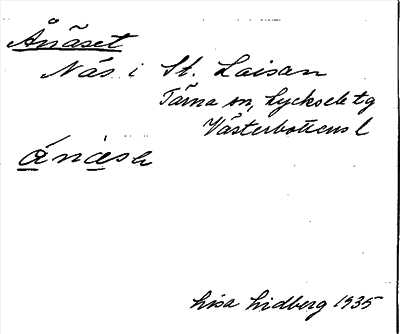 Ånäset
Näs i St. Laisan
Tärna sn, Lycksele tg
Västerbottens l
ánäsə
Lisa Lidberg 1935